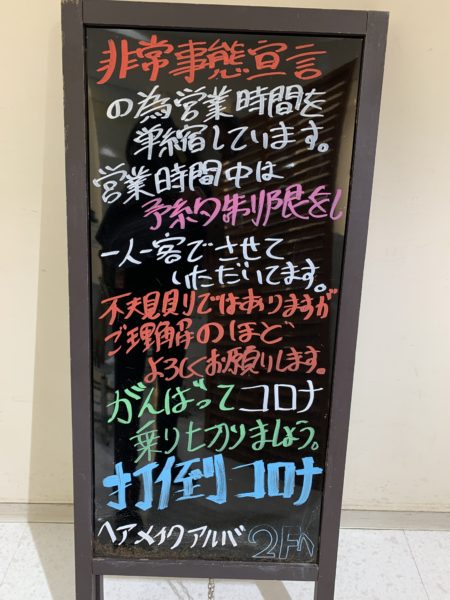 非常事態宣言
の為営業時間を
短縮しています。
営業時間中は
予約制限をし
一人一客でさせて
いただいてます。
不規則ではありますが
ご理解のほど
よろしくお願いします。
がんばってコロナ
乗り切りましょう。
打倒コロナ
ヘアメイクアルバ 2Fへ